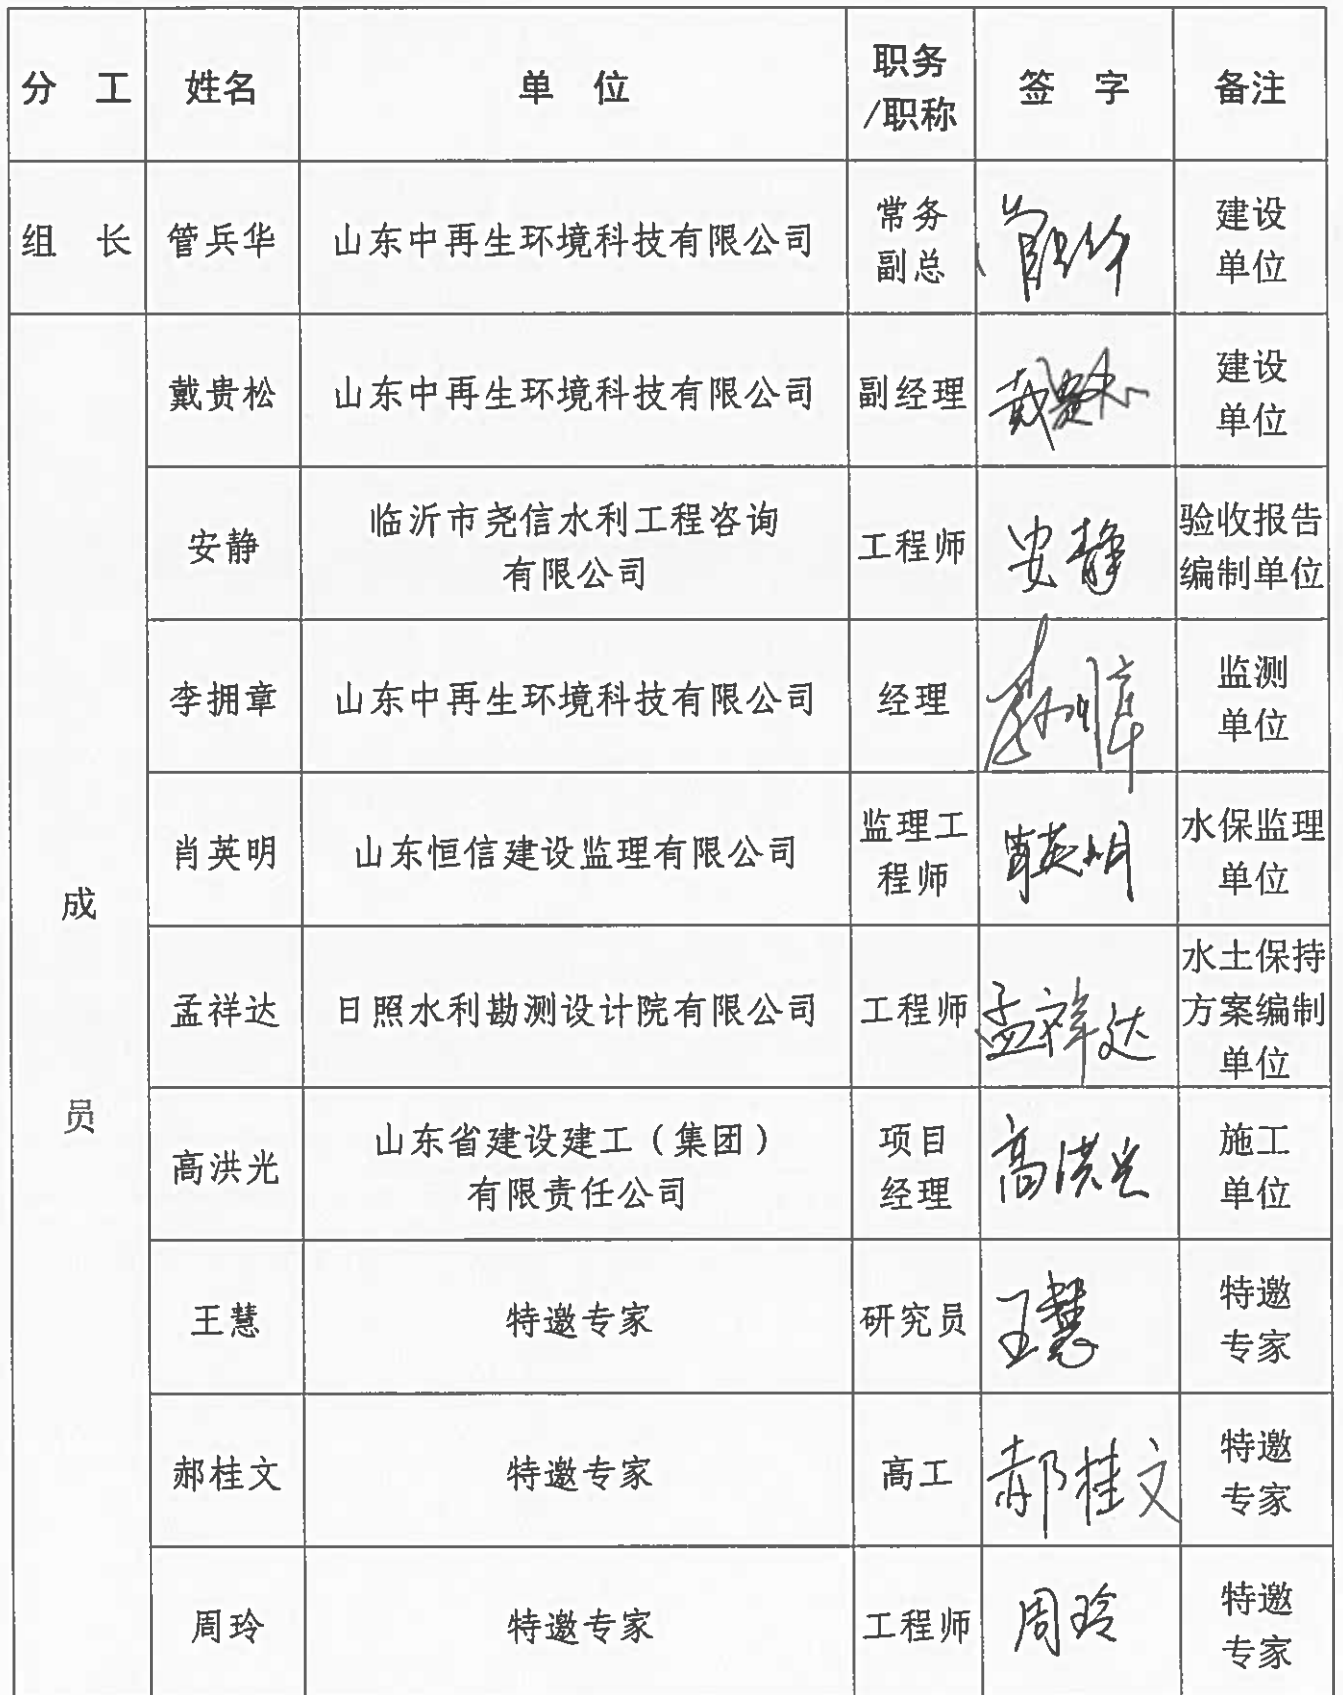 分 工 姓名 单 位 职务 签 字 备注
/职称
组 长 管兵华 山东中再生环境科技有限公司 常务 管兵华 建设
副总 单位
成 员
戴贵松 山东中再生环境科技有限公司 副经理 戴贵松 建设
单位
安静 临沂市尧信水利工程咨询 工程师 安静 验收报告
有限公司 编制单位
李拥章 山东中再生环境科技有限公司 经理 李拥章 监测
单位
肖英明 山东恒信建设监理有限公司 监理工 肖英明 水保监理
程师 单位
孟祥达 日照水利勘测设计院有限公司 工程师 孟祥达 水土保持
方案编制
单位
高洪光 山东省建设建工（集团） 项目 高洪光 施工
有限责任公司 经理 单位
王慧 特邀专家 研究员 王慧 特邀
专家
郝桂文 特邀专家 高工 郝桂文 特邀
专家
周玲 特邀专家 工程师 周玲 特邀
专家